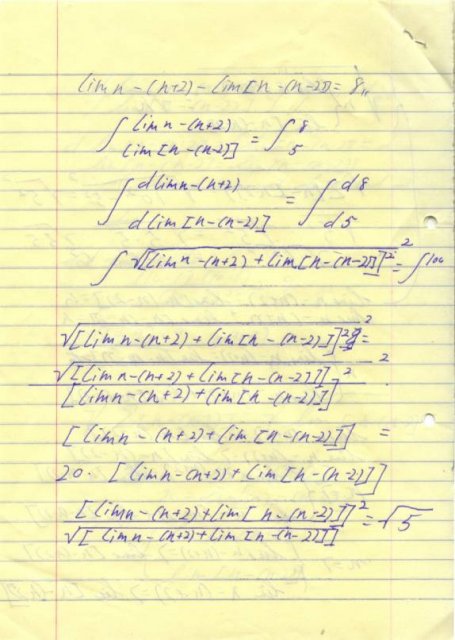 lim n - (n+2) - lim [n - (n-2)] = 8
∫ lim n - (n+2) / lim [n - (n-2)] = ∫ 8 / 5
∫ d lim n - (n+2) / d lim [n - (n-2)] = ∫ d8 / d5
∫ √[lim n - (n+2) + lim [n - (n-2)]]² = ² ∫
√[lim n - (n+2) + lim [n - (n-2)]]² =
√[lim n - (n+2) + lim [n - (n-2)]]²
[lim n - (n+2) + lim [n - (n-2)]]
[lim n - (n+2) + lim [n - (n-2)]] =
20 · [lim n - (n+2) + lim [n - (n-2)]]
[lim n - (n+2) + lim [n - (n-2)]]² / √[lim n - (n+2) + lim [n - (n-2)]] = √5